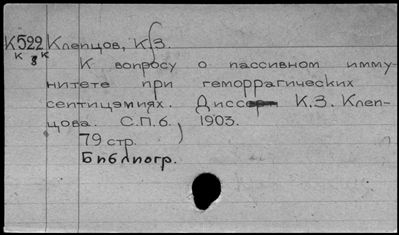 К522 Клепцов, К.З.
К 8 К
К вопросу о пассивном имму-
нитете при геморрагических
септицэмиях. Диссерт К.З. Клеп-
цова. С.П.б., 1903.
79 стр.
Библиогр.